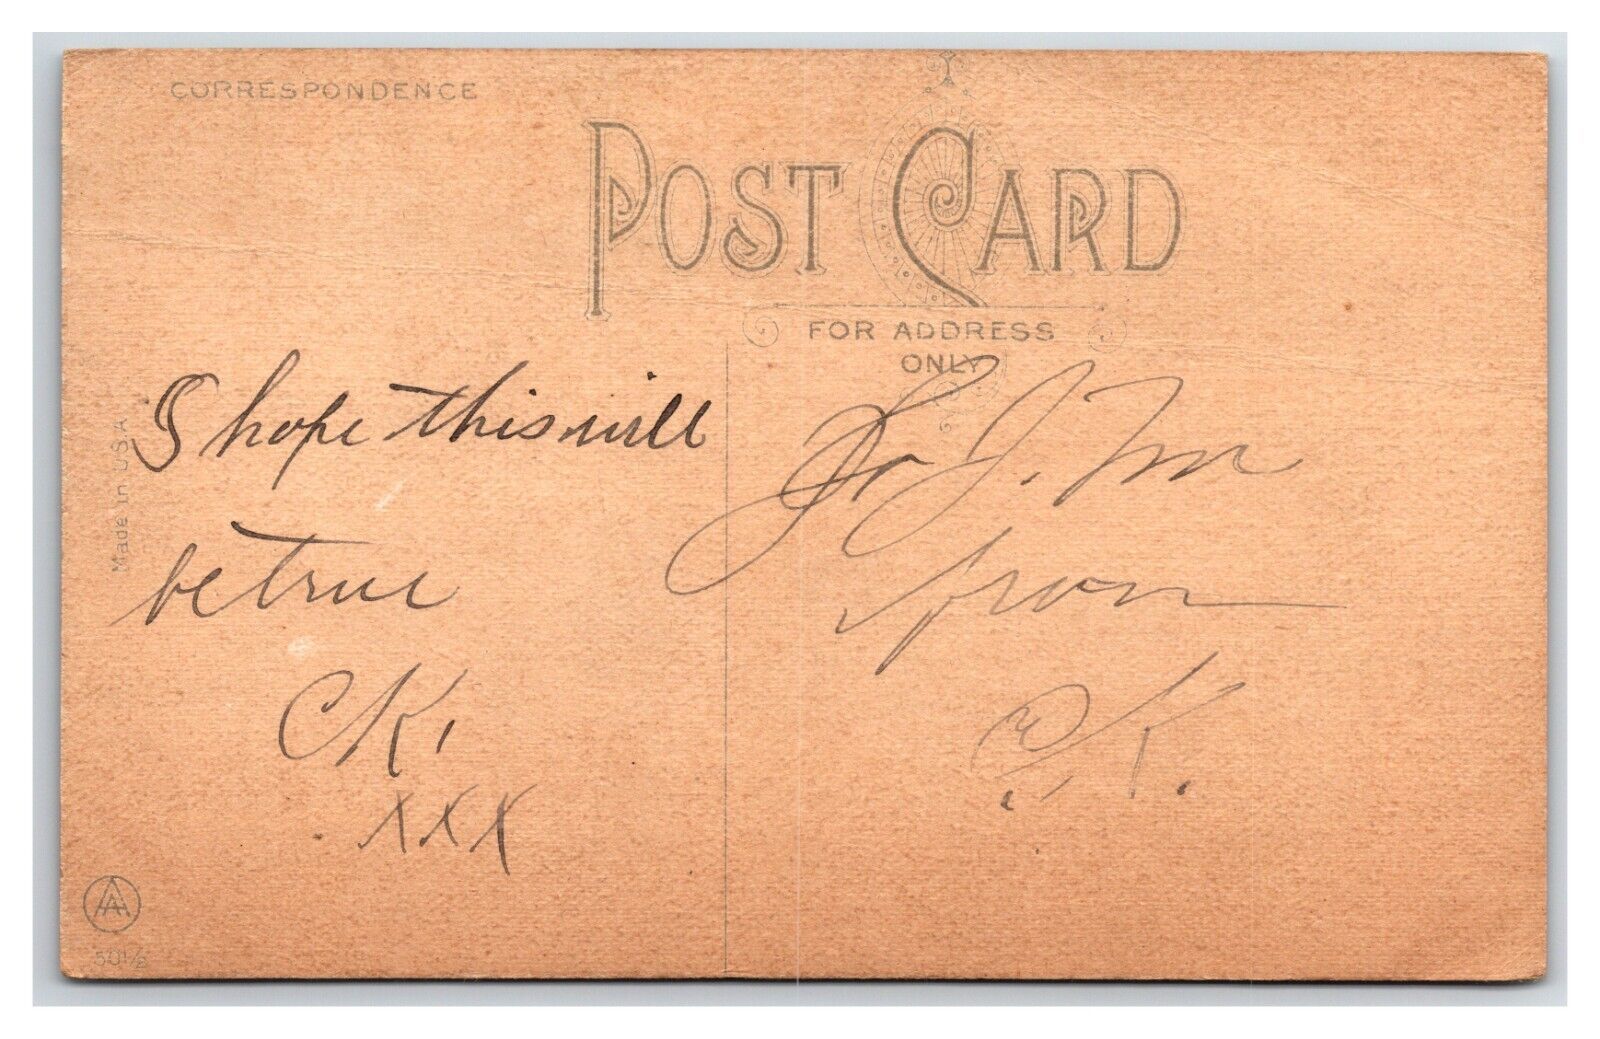 CORRESPONDENCE
POST CARD
FOR ADDRESS
ONLY
Made in U.S.A.
I hope this will
be true
CK.
XXX
To J. M
from
C.K.
AA
501/2